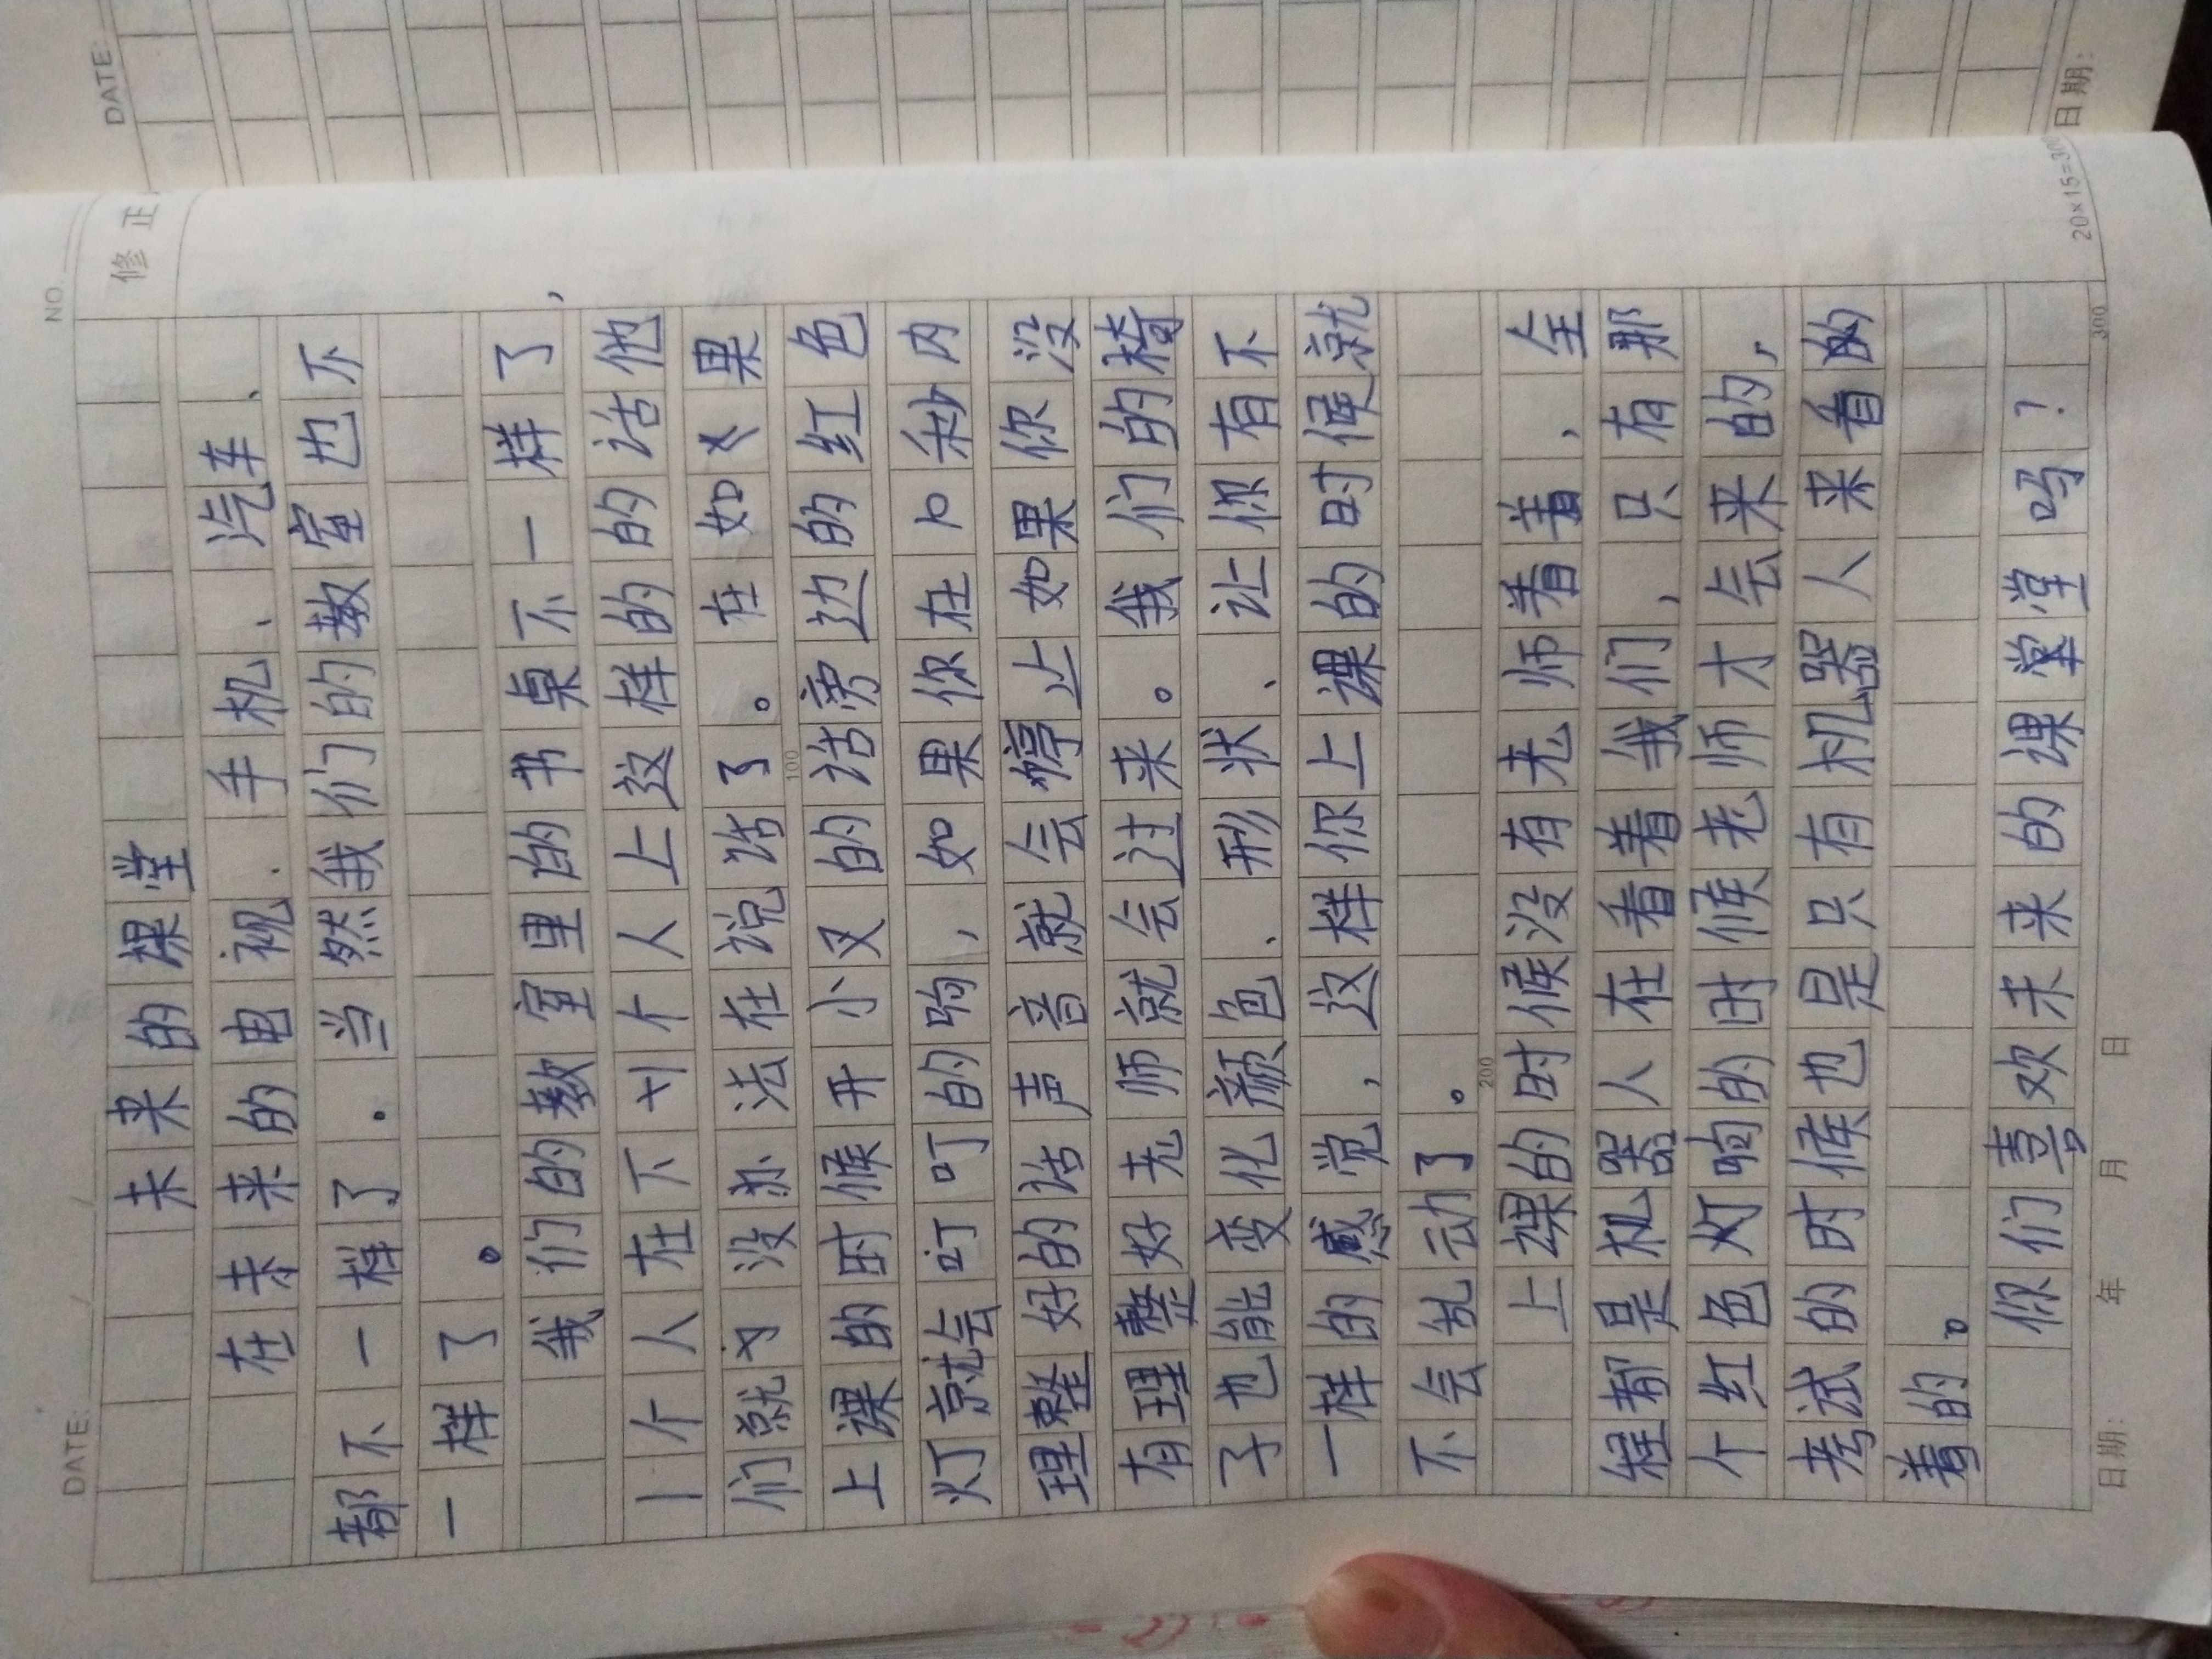 DATE:
日期:
DATE: / /
NO.
修正
未来的课堂
在未来的电视.手机、汽车、
都不一样了.当然我们的教室也不
一样了。
我们的教室里的书桌不一样了,
1个人在下+1个人上这样的的话他
们就 没办法在说话了。在如 果
上课的时候开小又的话旁边的红色
灯就会叮叮的响,如果你在 秒内
理整好的话声音就会停止如果你没
有理整好老师就会过来。我们的椅
子也能变化颜色、形状、让你有不
一样的感觉,这样你上课的时候就
不会乱动了。
上课的时候没有老师看着,全
程都是机器人在看着我们,只有那
个红色灯响的时候老师才会来的,
考试的时候也是只有机器人来看
着的。
你们喜欢未来的课堂吗?
100
200
300
20×15=300
日期: 年 月 日